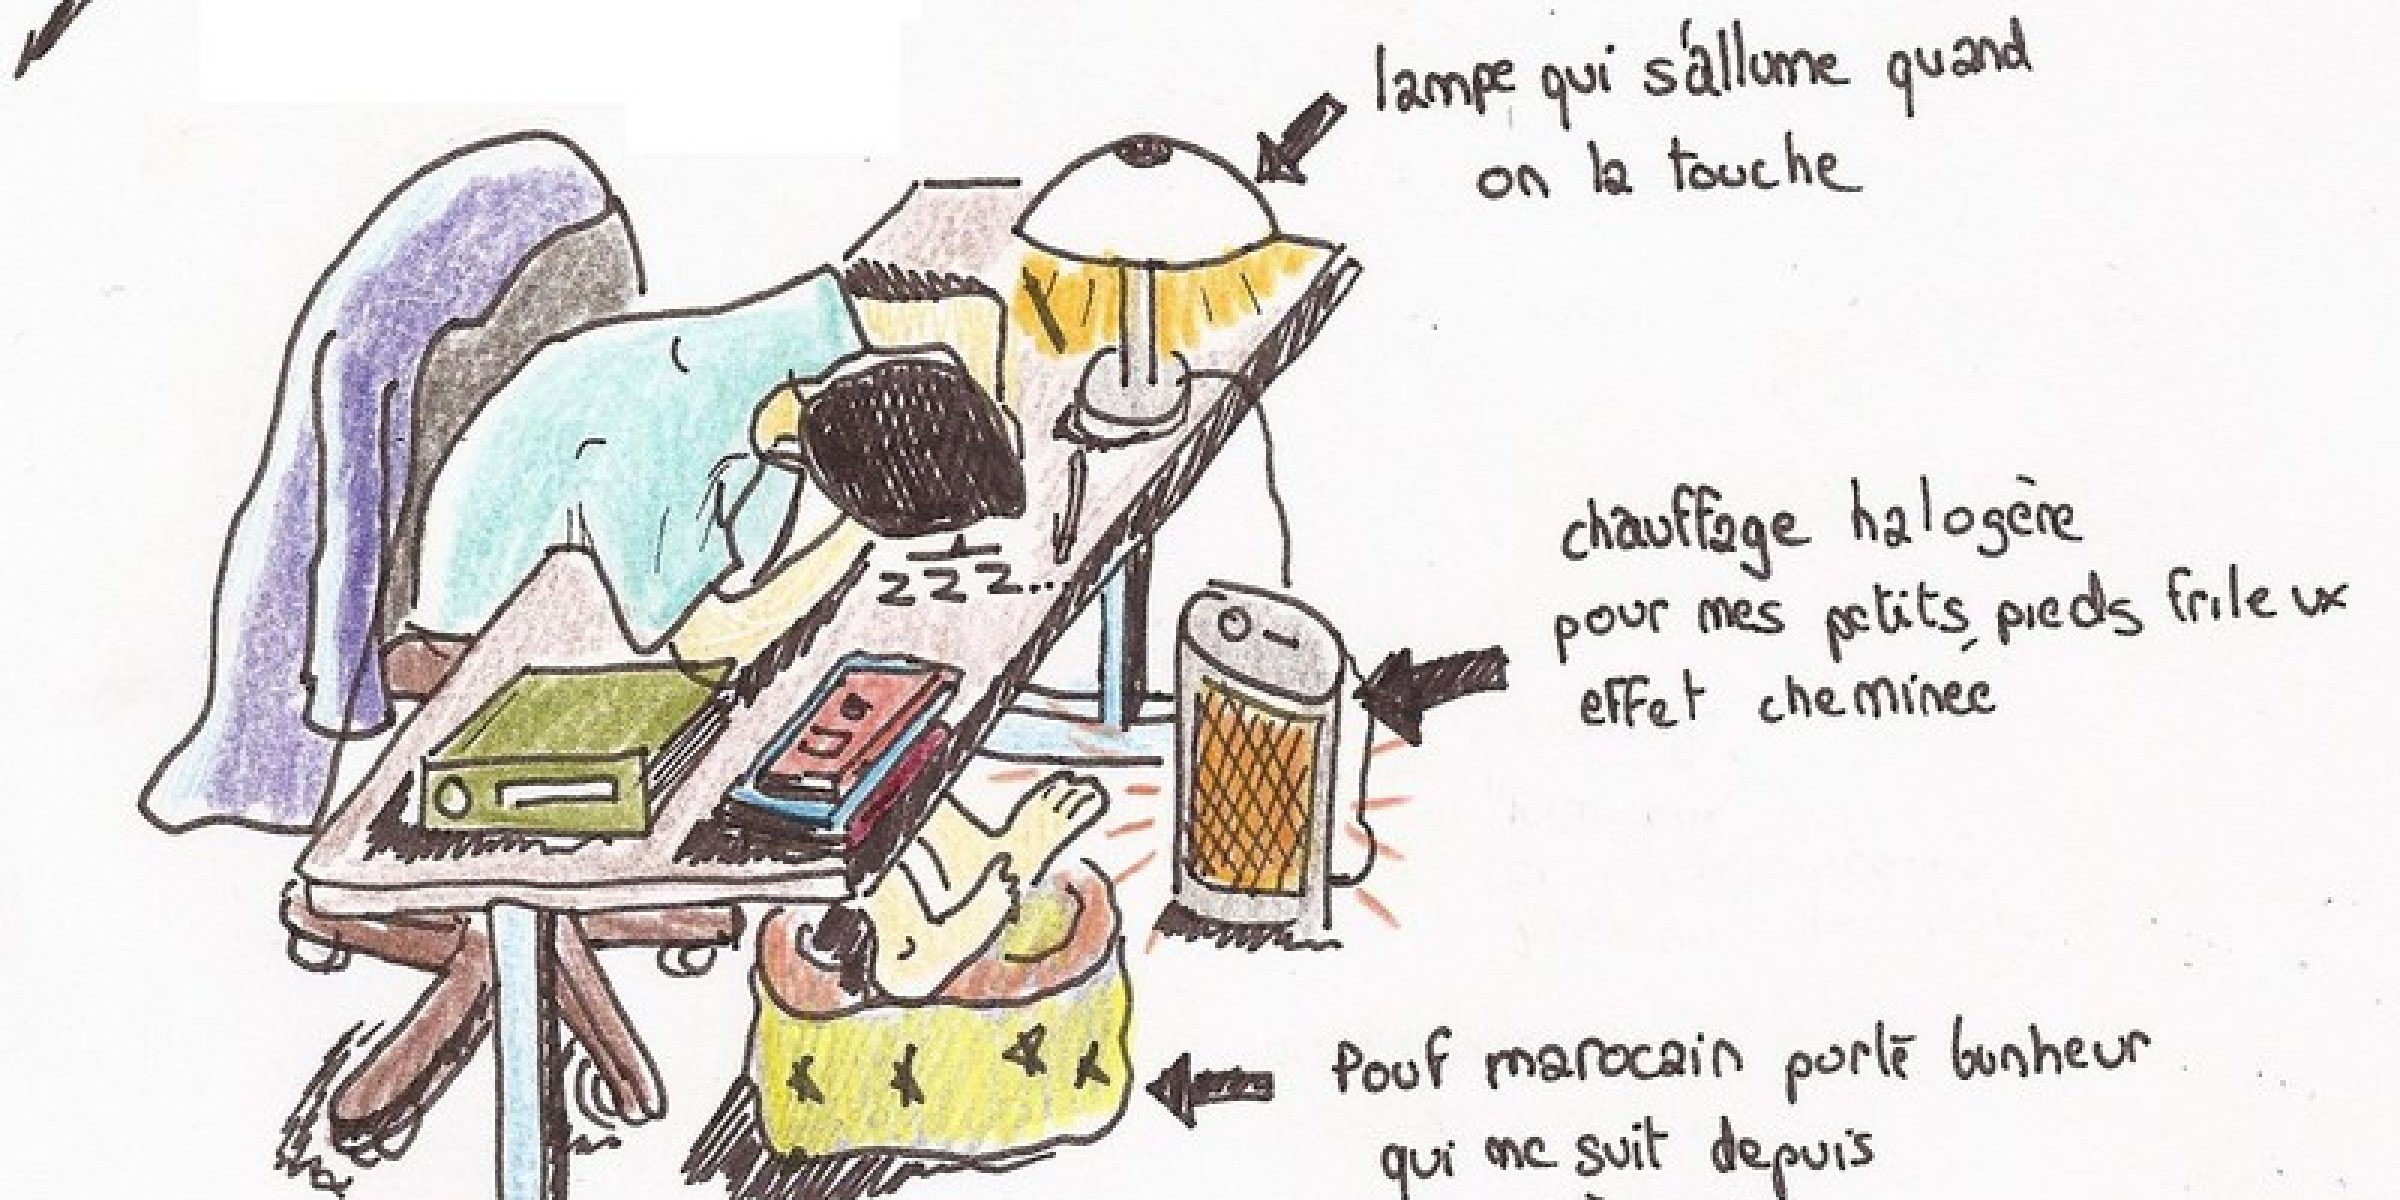 lampe qui s'allume quand
on la touche
zzz...
chauffage halogère
pour mes petits pieds frileux
effet cheminée
Pouf marocain porte bonheur
qui me suit depuis